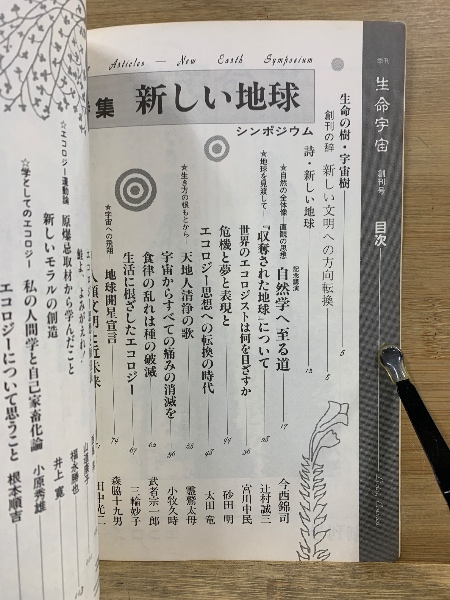 季刊
生命宇宙
創刊号
目次
Articles — New Earth Symposium
集 新しい地球
シンポジウム
生命の樹・宇宙樹 5
創刊の辞 新しい文明への方向転換 5
詩・新しい地球 13
記念講演
☆自然の全体像—直観の思想 自然学へ至る道 17 今西錦司
☆地球を見渡して 『収奪された地球』について 28 辻村誠三
世界のエコロジストは何を目ざすか 36 宮川中民
危機と夢と表現と 44 砂田明
エコロジー思想への転換の時代 49 太田竜
☆生き方の根もとから 天地人清浄の歌 55 霊鷲太母
宇宙からすべての痛みの消滅を 56 小牧久時
食律の乱れは種の破滅 62 武者宗一郎
生活に根ざしたエコロジー 67 三輪妙子
☆宇宙への飛翔 地球開星宣言 74 森脇十九男
人類文明と近未来 田中光二
鮭よ、よみがえれ！
福永勝也
☆エコロジー運動論 原爆忌取材から学んだこと
井上寛
新しいモラルの創造
☆学としてのエコロジー 私の人間学と自己家畜化論 小原秀雄
エコロジーについて思うこと 根本順吉